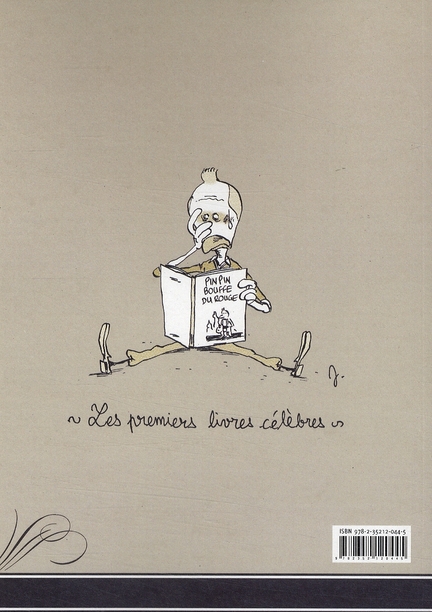 PINPIN
BOUFFE
DU ROUGE
J.
~ Les premiers livres célèbres ~
ISBN 978-2-35212-044-5